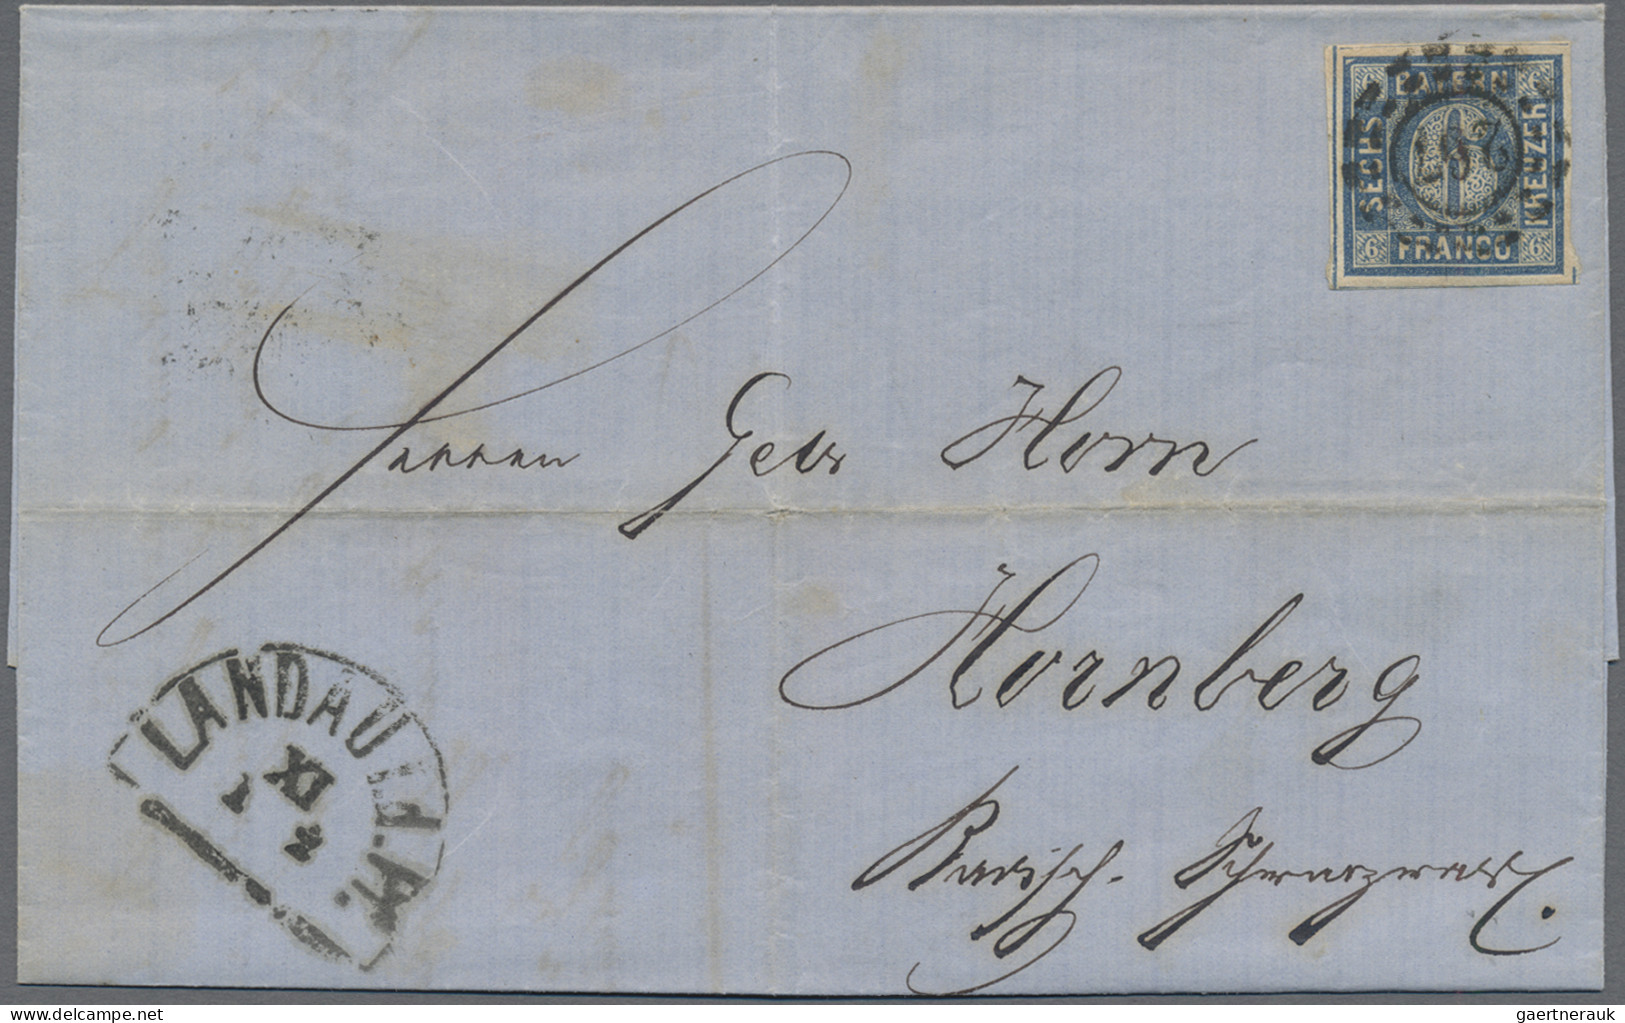 BAYERN
SECHS
KREUZER
FRANCO
6 6
6 6
Herren Gebr Horn
Hornberg
Badisch. Schwarzwald.
LANDAU
XI
1 2
gaertnerauk